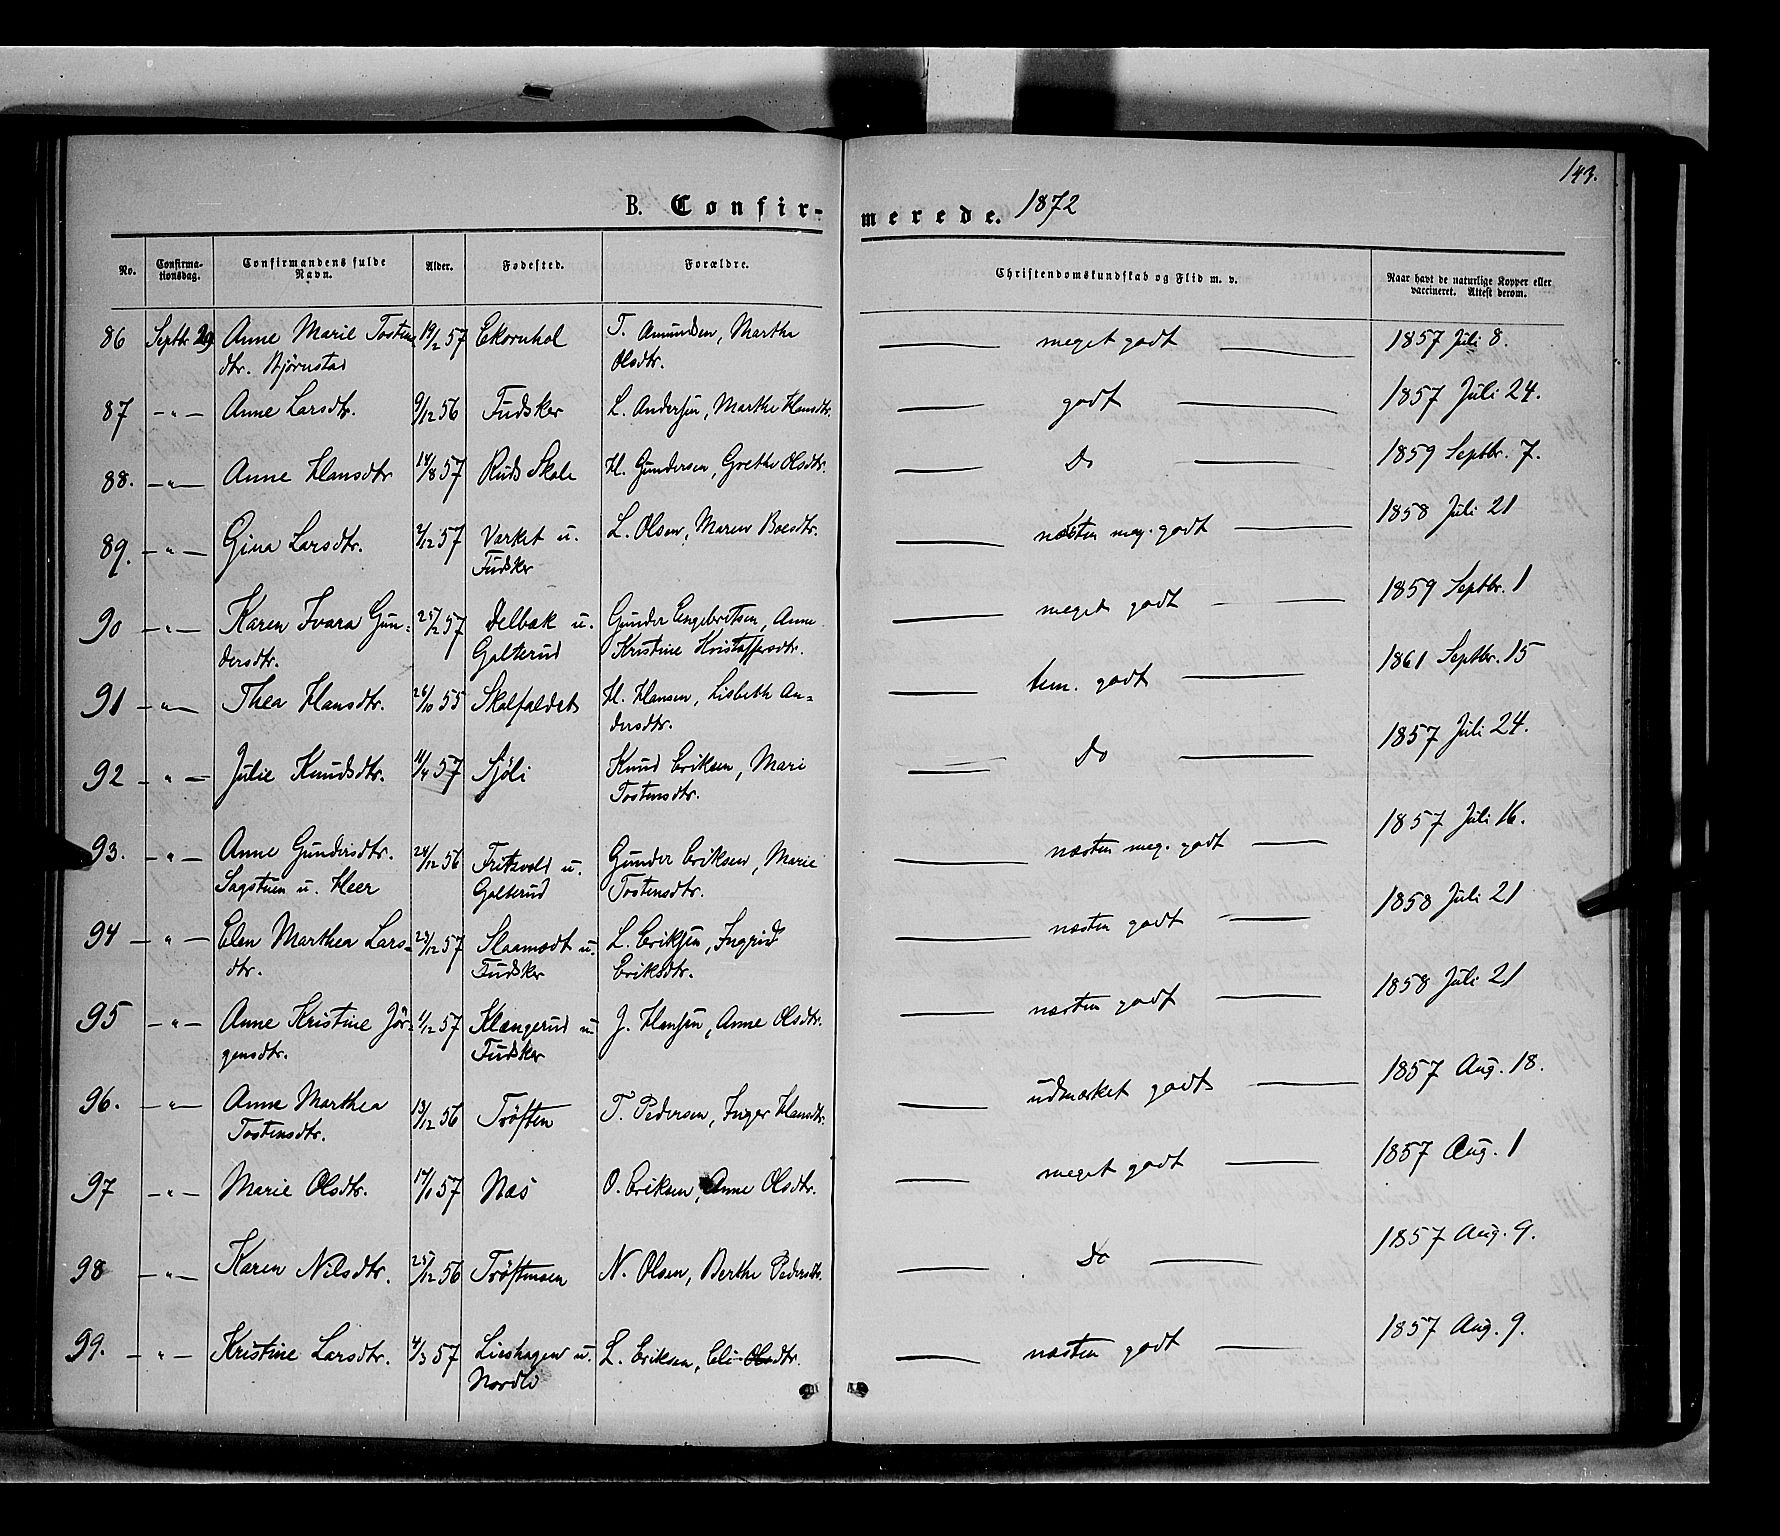 143.
B. Confir-merede. 1872
No. Confirma-tionsdag. Confirmandens fulde Navn. Alder. Fødested. Forældre. Christendomskundskab og Flid m. v. Naar havt de naturlige Kopper eller vaccineret. Attest derom.
86 Septbr 29 Anne Marie Tostens 19/2 57 Ekornhol T. Amundsen, Marthe meget godt 1857 Juli 8.
dtr. Bjørnstad Olsdtr.
87 -"- Anne Larsdtr. 9/12 56 Fudsker L. Andersen, Marthe Hansdtr. godt 1857 Juli 24.
88. -"- Anne Hansdtr 14/8 57 Ruds Skole H. Gundersen, Grethe Olsdtr. Do 1859 Septbr. 7.
89. -"- Gina Larsdtr. 2/12 57 Verket u. L. Olsen, Maren Boesdtr. næsten meg. godt 1858 Juli 21
Fudsker
90 -"- Karen Ivara Gun- 25/2 57 Delbæk u. Gunder Engebretsen, Anne meget godt 1859 Septbr. 1
dersdtr. Galterud Kristine Kristoffersdtr.
91 -"- Thea Hansdtr. 26/10 55 Skolfaldet H. Hansen, Lisbeth An- tem. godt 1861 Septbr. 15
dersdtr.
92 -"- Julie Knudsdtr. 11/4 57 Sjøli Knud Eriksen, Mari Do 1857 Juli 24.
Tostensdtr.
93. -"- Anne Gundersdtr. 24/12 56 Fritzvold u. Gunder Eriksen, Marie næsten meg. godt 1857 Juli 16.
Sagstuen u. Heer Galterud Tostensdtr.
94 -"- Elen Marthea Lars- 23/12 57 Slaamodt u. L. Eriksen, Ingrid næsten godt 1858 Juli 21
dtr. Fudsker Eriksdtr.
95 -"- Anne Kristine Jör- 1/12 57 Klangerud u. J. Hansen, Anne Olsdtr. næsten godt 1858 Juli 21
gensdtr. Fudsker
96. -"- Anne Marthea 13/12 56 Tröften T. Pedersen, Inger Hansdtr. udmærket godt 1857 Aug. 18.
Tostensdtr.
97 -"- Marie Olsdtr. 17/1 57 Næs O. Eriksen, Anne Olsdtr. meget godt 1857 Aug. 1
98 -"- Karen Nilsdtr. 25/12 56 Tröftmoen N. Olsen, Berthe Pedersdtr. Do 1857 Aug. 9.
99. -"- Kristine Larsdtr. 4/3 57 Lieshagen u. L. Eriksen, Eli Olsdtr. næsten godt 1857 Aug. 9.
Nordli